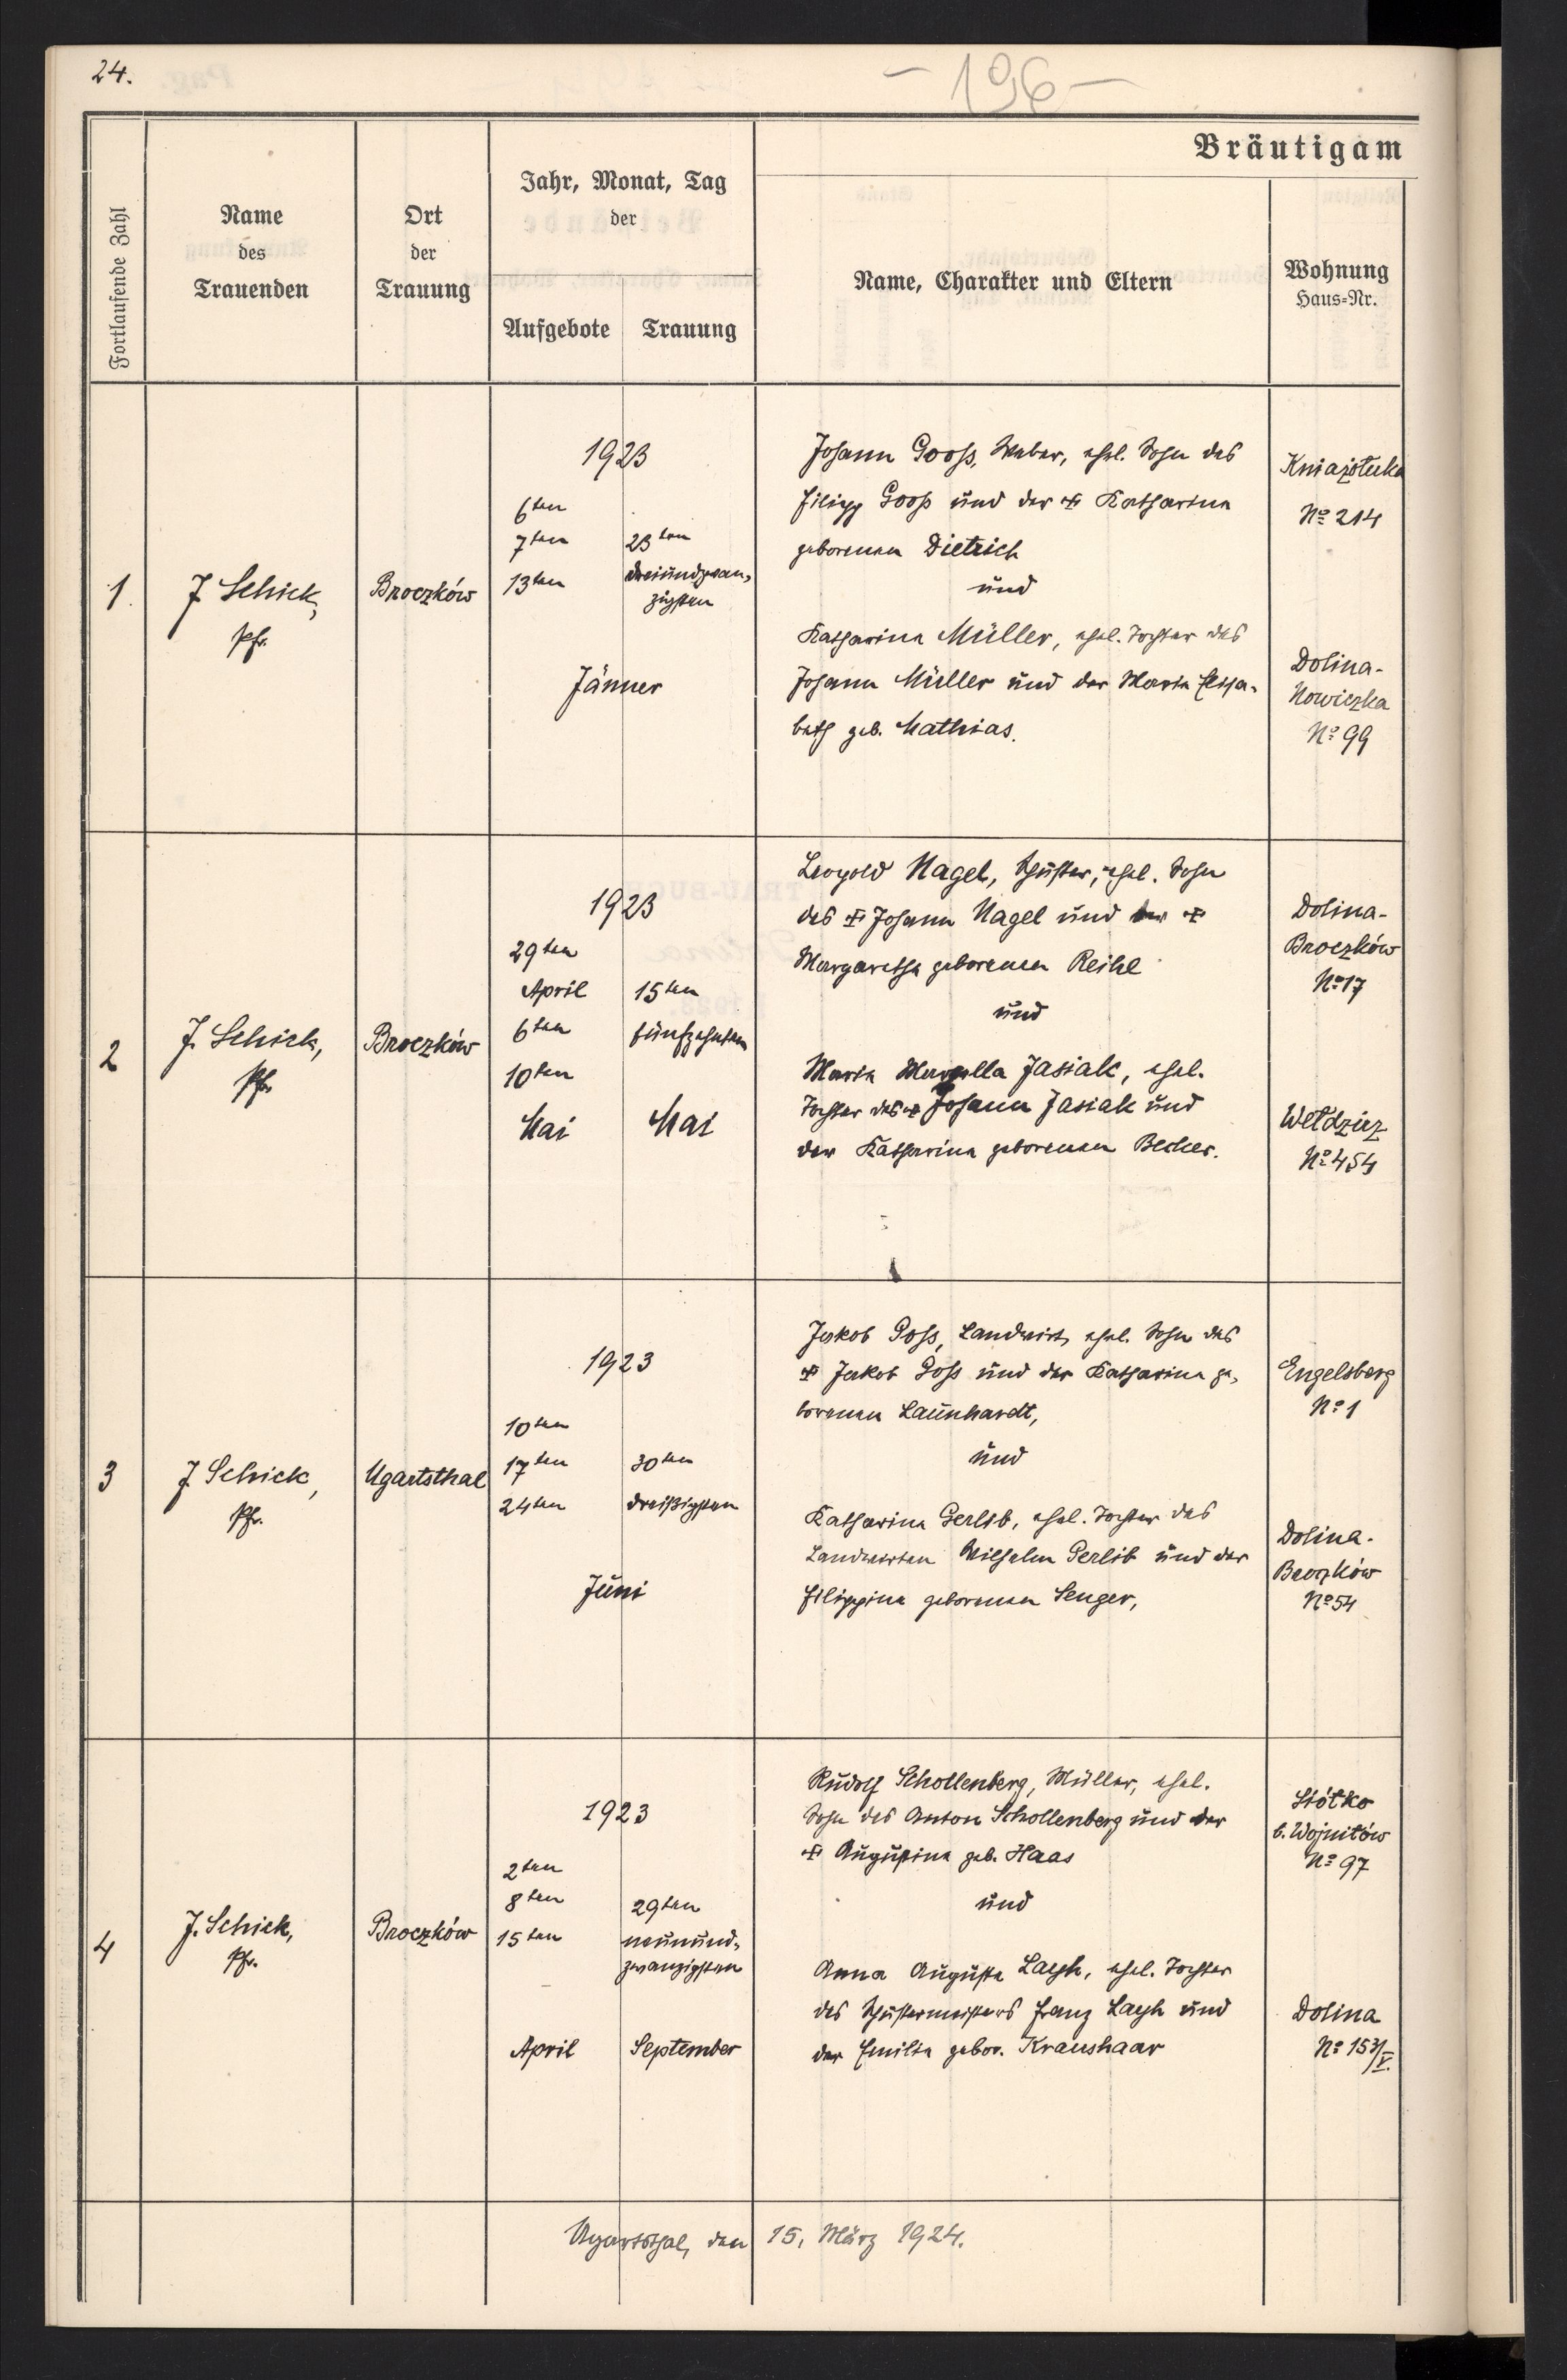 24.
- 196 -
Bräutigam
Fortlaufende Zahl
Name
des
Trauenden
Ort
der
Trauung
Jahr, Monat, Tag
der
Aufgebote
Trauung
Name, Charakter und Eltern
Wohnung
Haus=Nr.
1.
J Schick,
Pfr.
Broczków
1923
6ten
7ten
13ten
23ten
dreiundzwan,
zigsten
Jänner
Johann Gooß, Weber, ehel. Sohn des
Filipp Gooß und der ✠ Katharina
geborenen Dietrich
und
Katharina Müller, ehel. Tochter des
Johann Müller und der Maria Elisa-
beth geb. Mathias.
Kniażołuka
No 214
Dolina-
Nowiczka
No 99
2
J. Schick,
Pfr.
Broczków
1923
29ten
April
6ten
10ten
Mai
15ten
fünfzehnten
Mai
Leopold Nagel, Schuster, ehel. Sohn
des ✠ Johann Nagel und der ✠
Margaretha geborenen Reihl
und
Maria Jasiak, ehel.
Tochter des ✠ Johann Jasiak und
der Katharina geborenen Becker.
Dolina-
Broczków
No 17
Wełdzirz
No 454
3
J. Schick,
Pfr.
Ugartsthal
1923
10ten
17ten
24ten
30ten
dreißigsten
Juni
Jakob Goß, Landwirt, ehel. Sohn des
✠ Jakob Goß und der Katharina ge,
borenen Launhardt,
und
Katharina Gerlib, ehel. Tochter des
Landwirten Wilhelm Gerlib und der
Filippina geborenen Senger,
Engelsberg
No 1
Dolina-
Broczków
No 54
4
J. Schick,
Pfr.
Broczków
1923
2ten
8ten
15ten
April
29ten
neunund,
zwanzigsten
September
Rudolf Schollenberg, Müller, ehel.
Sohn des Anton Schollenberg und der
✠ Augustina geb. Haas
und
Anna Augusta Layh, ehel. Tochter
des Schustermeisters Franz Layh und
der Emilia gebor. Kraushaar
Siółko
b. Wojniłów
No 97
Dolina
No 153/V.
Ugartsthal, den 15. März 1924.